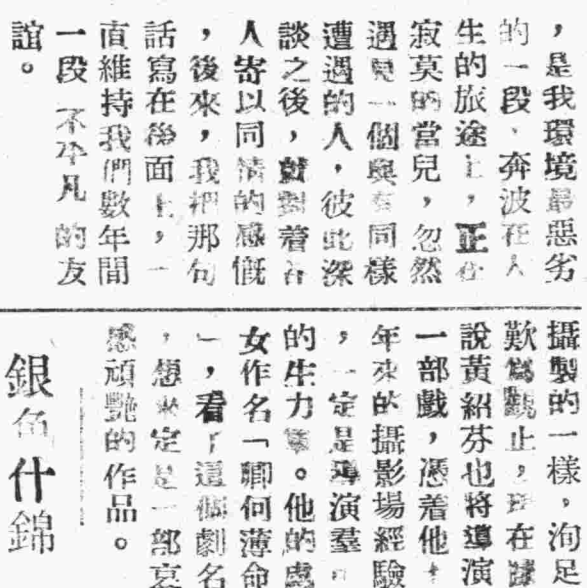 ，是我環境最惡劣
的一段，奔波在人
生的旅途上，正在
寂莫的當兒，忽然
遇見一個與有同樣
遭遇的人，彼此深
談之後，就對着
人寄以同情的感慨
，後來，我把那句
話寫在後面上，一
直維持我們數年間
一段不平凡的友
誼。
攝製的一樣，洵足
歎爲觀止，現在據
說黃紹芬也將導演
一部戲，憑着他
年來的攝影場經驗
，一定是導演羣
的生力軍。他的處
女作名「卿何薄命
」，看了這個劇名
，想來定是一部哀
感頑艷的作品。
銀色什錦